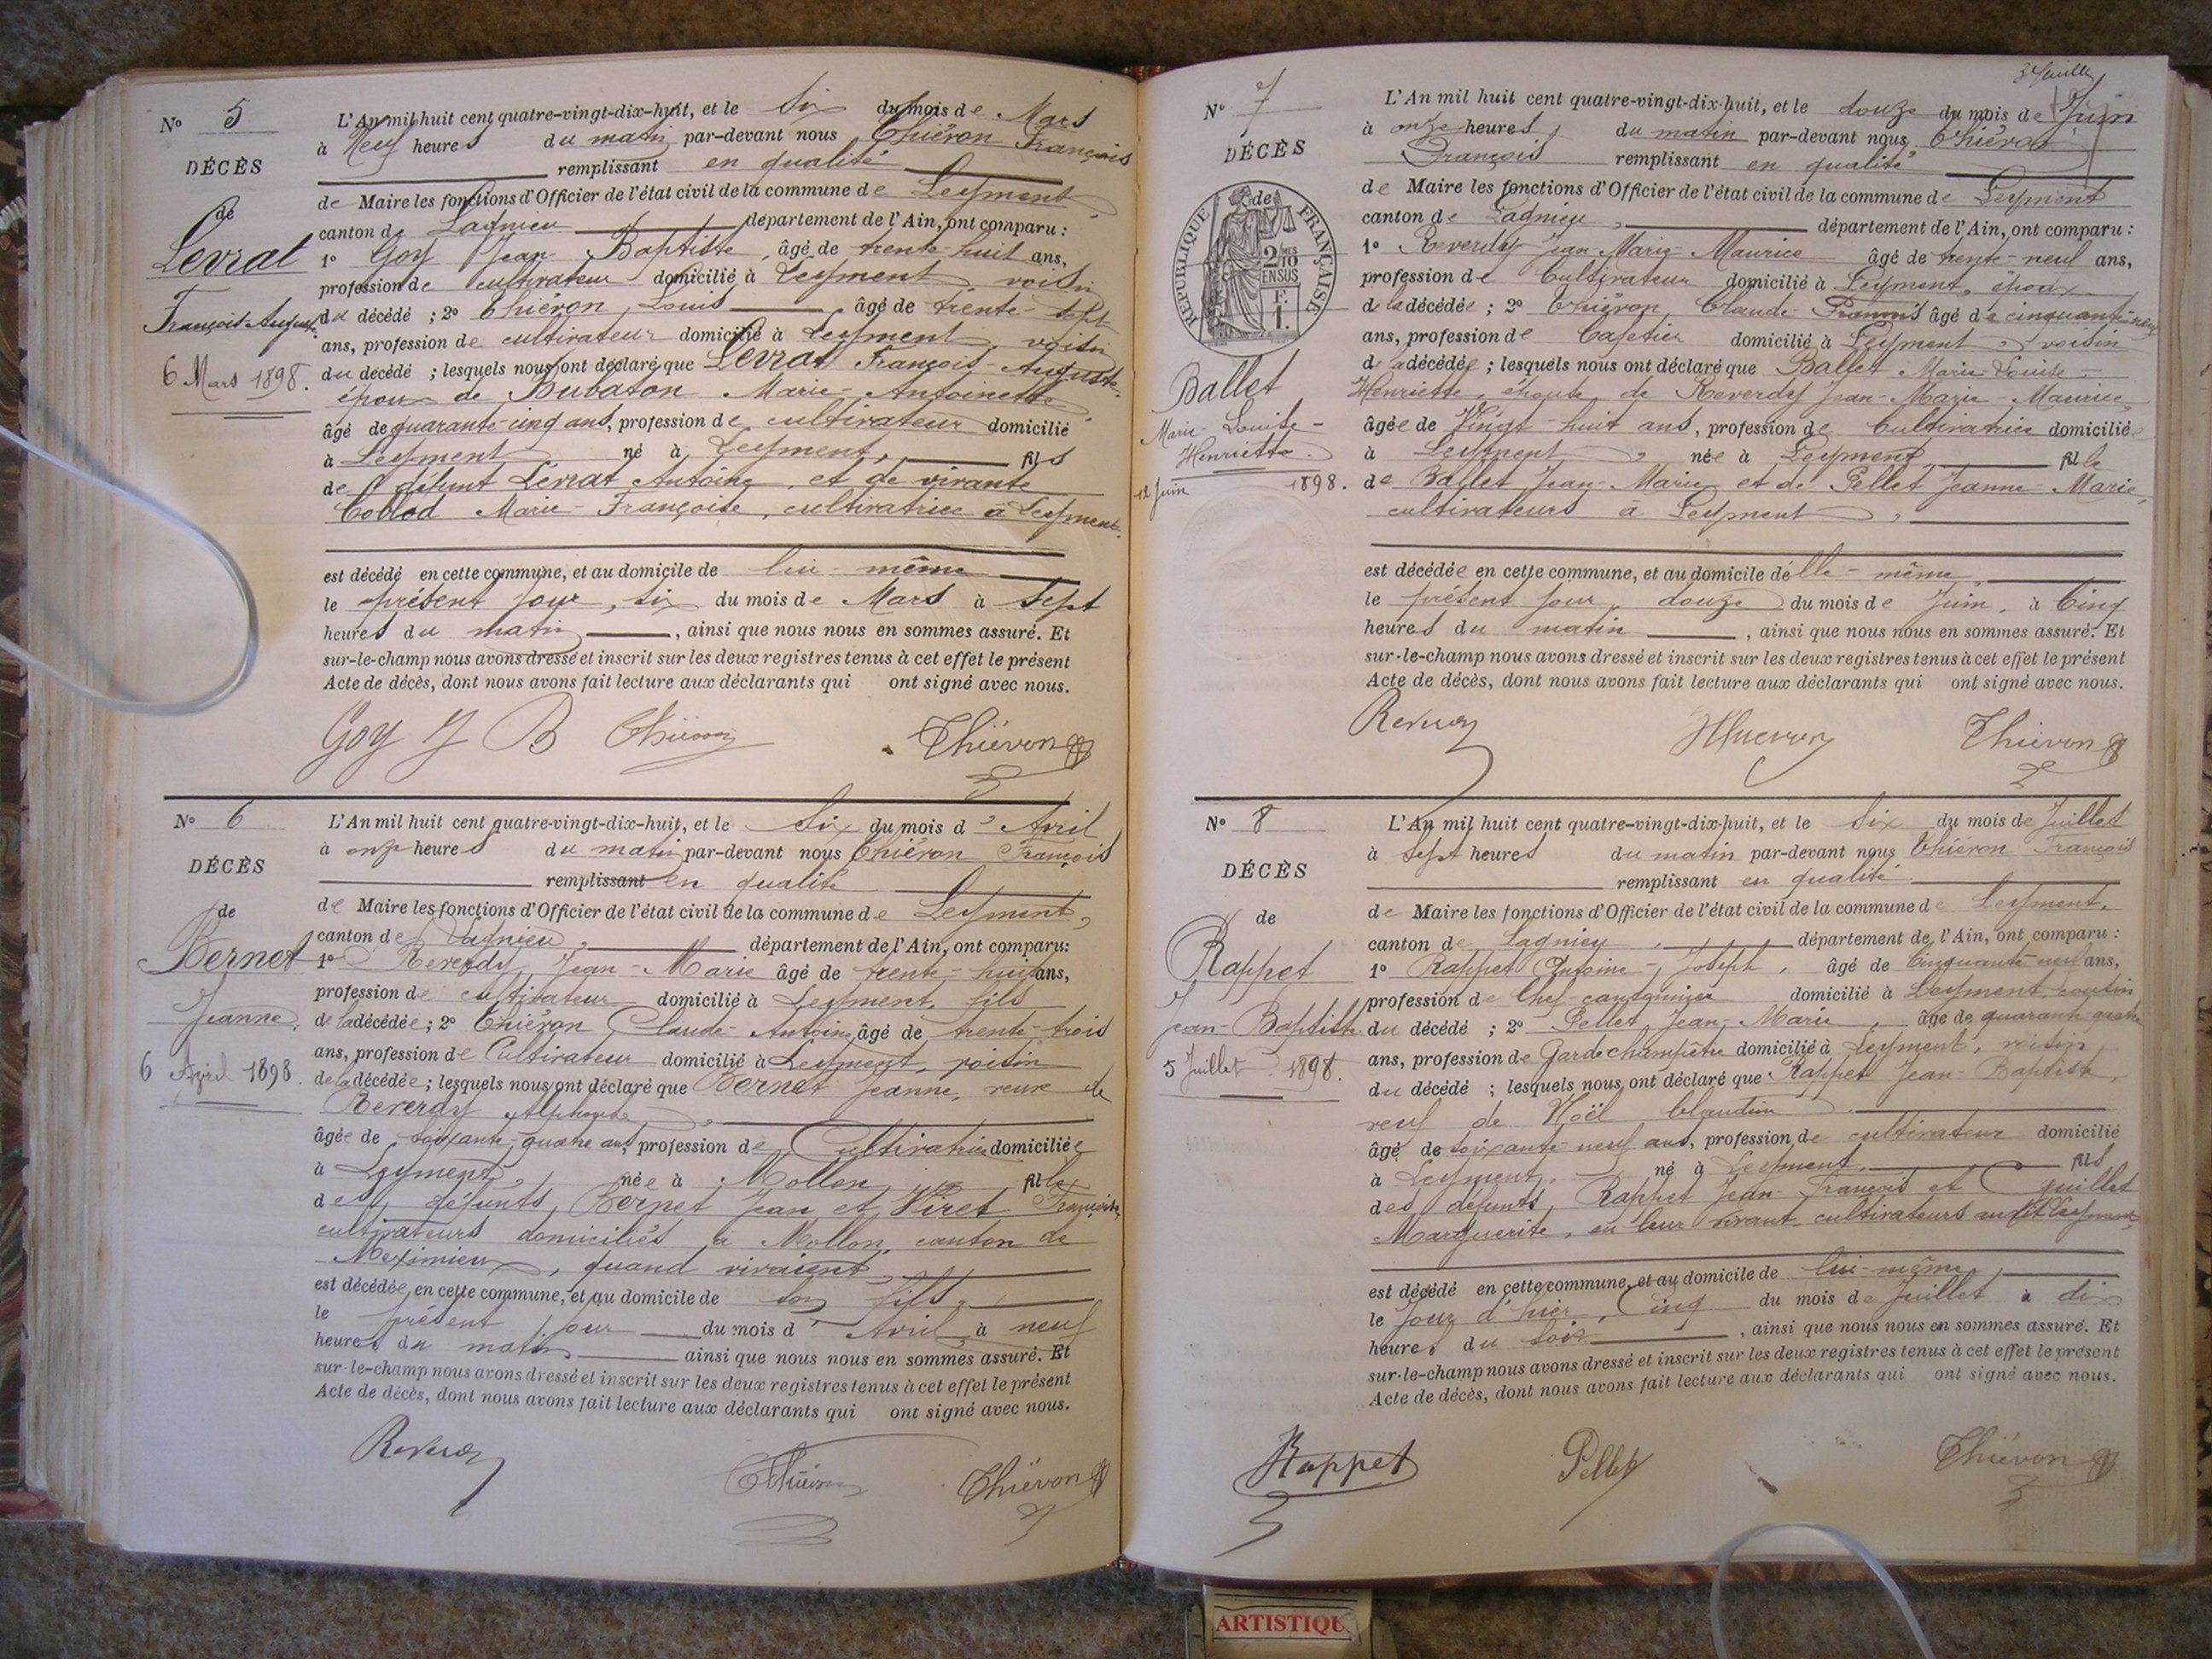 N° 5
DÉCÈS
de
Levrat
François-Auguste
6 Mars 1898.
L'An mil huit cent quatre-vingt-dix-huit, et le Six du mois de Mars
à Neuf heures du matin par-devant nous Thiévon François
remplissant en qualité
de Maire les fonctions d'Officier de l'état civil de la commune de Leyment,
canton de Lagnieu département de l'Ain, ont comparu :
1° Goy Jean Baptiste, âgé de trente-huit ans,
profession de cultivateur domicilié à Leyment, voisin
du décédé ; 2° Thiévon Louis âgé de trente-sept
ans, profession de cultivateur domicilié à Leyment, voisin
du décédé ; lesquels nous ont déclaré que Levrat François-Auguste
époux de Dubaton Marie-Antoinette
âgé de quarante-cinq ans, profession de cultivateur domicilié
à Leyment né à Leyment, fils
de défunt Levrat Antoine, et de vivante
Marie-Françoise, cultivatrice à Leyment.
est décédé en cette commune, et au domicile de lui-même
le présent jour, six du mois de Mars à Sept
heures du matin, ainsi que nous nous en sommes assuré. Et
sur-le-champ nous avons dressé et inscrit sur les deux registres tenus à cet effet le présent
Acte de décès, dont nous avons fait lecture aux déclarants qui ont signé avec nous.
Goy J B Thiévon Thiévon
N° 6
DÉCÈS
de
Bernet
Jeanne,
6 Avril 1898.
L'An mil huit cent quatre-vingt-dix-huit, et le Six du mois d'Avril
à onze heures du matin par-devant nous Thiévon François
remplissant en qualité
de Maire les fonctions d'Officier de l'état civil de la commune de Leyment,
canton de Lagnieu, département de l'Ain, ont comparu :
1° Reverdy Jean-Marie âgé de trente-huit ans,
profession de cultivateur domicilié à Leyment, fils
de la décédée ; 2° Thiévon Claude-Antoine âgé de trente-trois
ans, profession de Cultivateur domicilié à Leyment, voisin
de la décédée ; lesquels nous ont déclaré que Bernet Jeanne, veuve de
Reverdy Alphonse,
âgée de soixante-quatre ans, profession de Cultivatrice domiciliée
à Leyment, née à Mollon, fille
des défunts, Bernet Jean et Viret Françoise,
cultivateurs domiciliés à Mollon, canton de
Meximieu, quand vivaient
est décédée en cette commune, et au domicile de son fils,
le présent jour du mois d'Avril à neuf
heures du matin ainsi que nous nous en sommes assuré. Et
sur-le-champ nous avons dressé et inscrit sur les deux registres tenus à cet effet le présent
Acte de décès, dont nous avons fait lecture aux déclarants qui ont signé avec nous.
Reverdy Thiévon Thiévon
3e feuille
N° 7
DÉCÈS
de
RÉPUBLIQUE FRANÇAISE
2/10 EN SUS
F. 1.
Ballet
Marie-Louise-
Henriette.
12 Juin 1898.
L'An mil huit cent quatre-vingt-dix-huit, et le douze du mois de Juin
à onze heures, du matin par-devant nous Thiévon
François remplissant en qualité
de Maire les fonctions d'Officier de l'état civil de la commune de Leyment
canton de Lagnieu, département de l'Ain, ont comparu :
1° Reverdy Jean-Marie-Maurice âgé de trente-neuf ans,
profession de Cultivateur domicilié à Leyment, époux
de la décédée ; 2° Thiévon Claude-Francis âgé de cinquante-neuf
ans, profession de Cafetier domicilié à Leyment, voisin
de la décédée ; lesquels nous ont déclaré que Ballet Marie-Louise-
Henriette, épouse de Reverdy Jean-Marie-Maurice,
âgée de Vingt-huit ans, profession de Cultivatrice domiciliée
à Leyment, née à Leyment, fille
de Ballet Jean-Marie et de Pellet Jeanne-Marie,
cultivateurs à Leyment,
est décédée en cette commune, et au domicile d'elle-même,
le présent jour, douze du mois de Juin, à Cinq
heures du matin, ainsi que nous nous en sommes assuré. Et
sur-le-champ nous avons dressé et inscrit sur les deux registres tenus à cet effet le présent
Acte de décès, dont nous avons fait lecture aux déclarants qui ont signé avec nous.
Reverdy Thiévon
N° 8
DÉCÈS
de
Rappet
Jean-Baptiste
5 Juillet 1898.
L'An mil huit cent quatre-vingt-dix-huit, et le Six du mois de Juillet
à Sept heures du matin par-devant nous Thiévon François
remplissant en qualité
de Maire les fonctions d'Officier de l'état civil de la commune de Leyment,
canton de Lagnieu, département de l'Ain, ont comparu :
1° Rappet Antoine-Joseph, âgé de Cinquante-neuf ans,
profession de Chef-cantonnier domicilié à Leyment, cousin
du décédé ; 2° Pellet Jean-Marie, âgé de quarante-quatre
ans, profession de Garde champêtre domicilié à Leyment, voisin
du décédé ; lesquels nous ont déclaré que Rappet Jean-Baptiste,
veuf de Noël Claudine
âgé de soixante-neuf ans, profession de cultivateur domicilié
à Leyment, né à Leyment, fils
des défunts, Rappet Jean-François et Juillet
Marguerite, en leur vivant cultivateurs audit Leyment,
est décédé en cette commune, et au domicile de lui-même,
le jour d'hier, Cinq du mois de Juillet à dix
heures du soir, ainsi que nous nous en sommes assuré. Et
sur-le-champ nous avons dressé et inscrit sur les deux registres tenus à cet effet le présent
Acte de décès, dont nous avons fait lecture aux déclarants qui ont signé avec nous.
Rappet Pellet Thiévon
ARTISTIQU